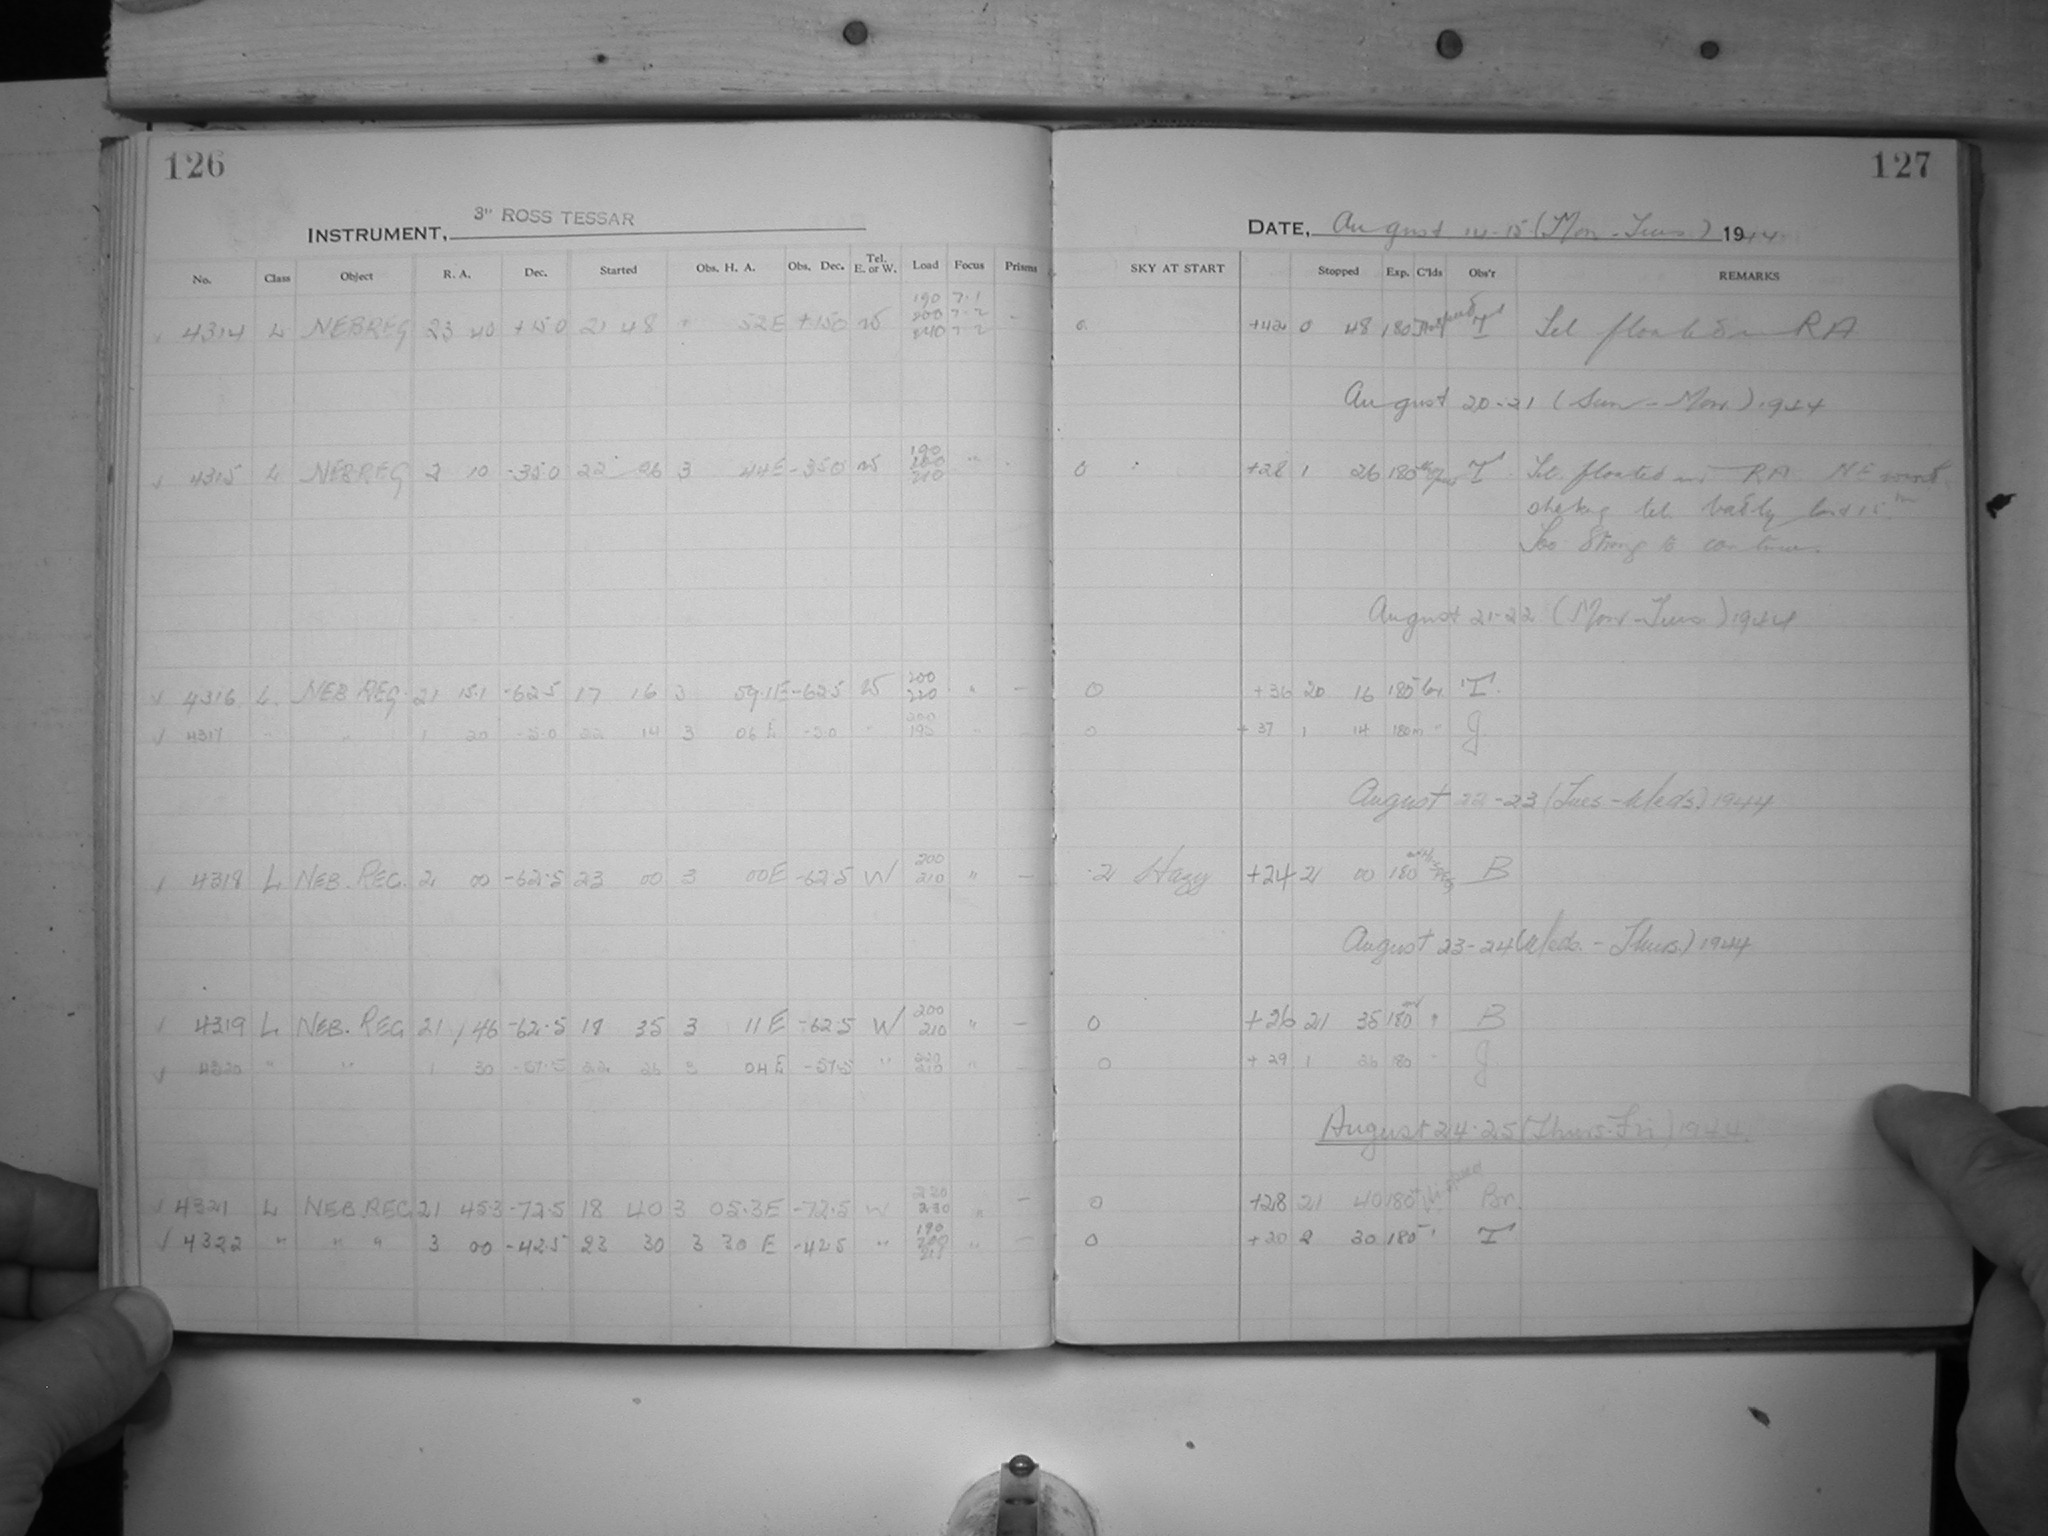 126
127
INSTRUMENT, 3" ROSS TESSAR
DATE, August 14-15 (Mon-Tues.) 1944
No. Class Object R. A. Dec. Started Obs. H. A. Obs. Dec. Tel. E. or W. Load Focus Prisms SKY AT START Stopped Exp. C'lds Obs'r REMARKS
4314 L NEBREG 23 40 +15 0 21 48 52E +150 W 190 200 240 7.1 7.2 7.2 - 0 +42 0 48 180 T Tel floated in RA
August 20-21 (Sun-Mon) 1944
4315 L NEBREG 2 10 -350 22 26 3 44E -350 W 190 210 " 0 +28 1 26 180 T Tel. floated in RA. NE wind
shaking tel. badly last 15m
Too Strong to continue.
August 21-22 (Mon-Tues) 1944
√ 4316 L. NEB REG. 21 15.1 -62.5 17 16 3 59.1E -62.5 W 200 220 " - 0 +36 20 16 180 T.
√ 4317 " " 1 20 -5.0 22 14 3 06 E -5.0 " 200 190 " - 0 +37 1 14 180m " J.
August 22-23 (Tues-Weds.) 1944
4318 L NEB. REG. 21 00 -62.5 23 00 3 00E -62.5 W 200 210 " - 2 Hazy +24 21 00 180 B
August 23-24 (Weds. - Thurs.) 1944
4319 L NEB. REG 21 46 -62.5 18 35 3 11E -62.5 W 200 210 " - 0 +26 21 35 180 " B
√ 4320 " " 1 30 -57.5 22 26 3 04E -57.5 " 220 210 " - 0 +29 1 26 180 " J.
August 24-25 (Thurs-Fri) 1944
√ 4321 L NEB.REG 21 45.3 -72.5 18 40 3 05.3E -72.5 W 220 230 " - 0 +28 21 40 180 Br.
√ 4322 " " " 3 00 -42.5 23 30 3 30 E -42.5 " 190 200 " - 0 +20 2 30 180 " T